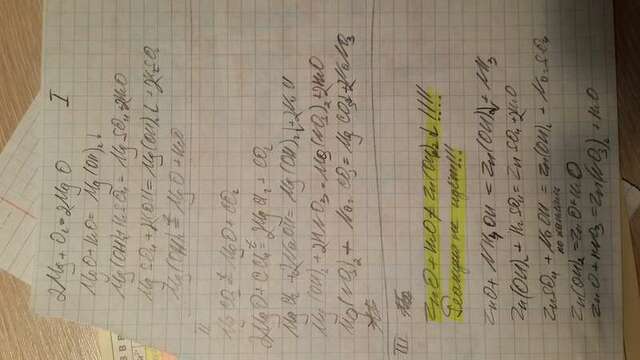 I
2Mg + O₂ = 2MgO
MgO + H₂O = Mg(OH)₂↓
Mg(OH)₂ + H₂SO₄ = MgSO₄ + 2H₂O
MgSO₄ + 2KOH = Mg(OH)₂↓ + K₂SO₄
Mg(OH)₂ = MgO + H₂O
II
MgCO₃ = MgO + CO₂
2MgO + Cl₂ = 2MgCl₂ + O₂
MgCl₂ + 2NaOH = Mg(OH)₂↓ + 2NaCl
Mg(OH)₂ + 2HNO₃ = Mg(NO₃)₂ + 2H₂O
Mg(NO₃)₂ + Na₂CO₃ = MgCO₃ + 2NaNO₃
III
ZnO + H₂O ≠ Zn(OH)₂↓ !!!!
Реакция не идет!!!
ZnO + NH₄OH = Zn(OH)₂ + NH₃
Zn(OH)₂ + H₂SO₄ = ZnSO₄ + 2H₂O
ZnSO₄ + NaOH = Zn(OH)₂ + Na₂SO₄
по каплям
Zn(OH)₂ = ZnO + H₂O
ZnO + HNO₃ = Zn(NO₃)₂ + H₂O